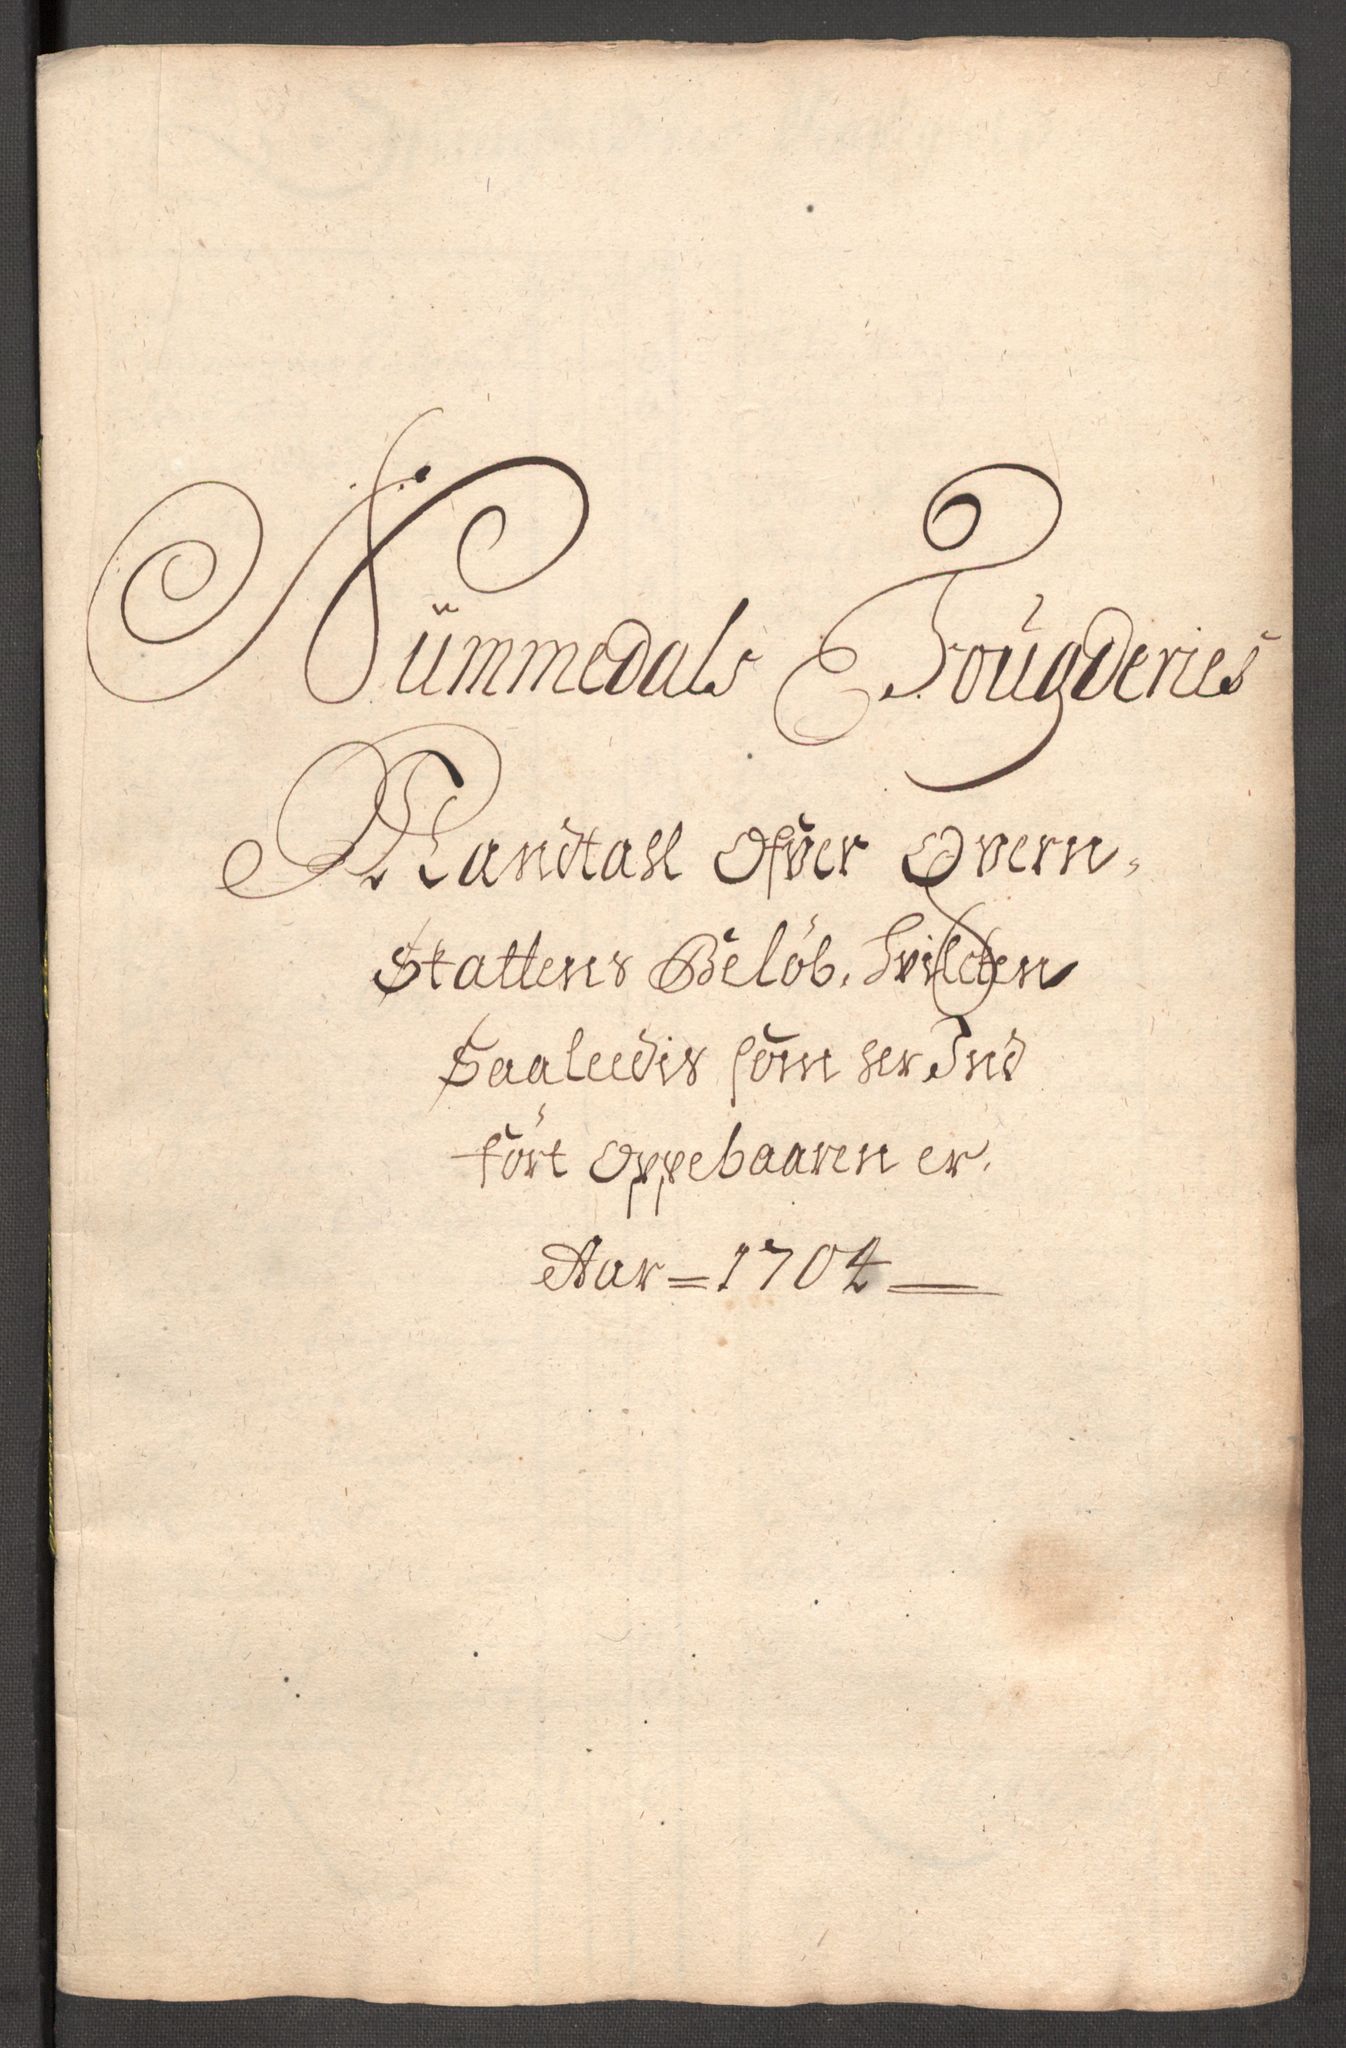 Nümmedals Fougderies
Mandtall Ofver Qvern-
Skattens Beløb, hvilcken
Saaleedis som her Ind
ført oppebaaren er.
Aar = 1704